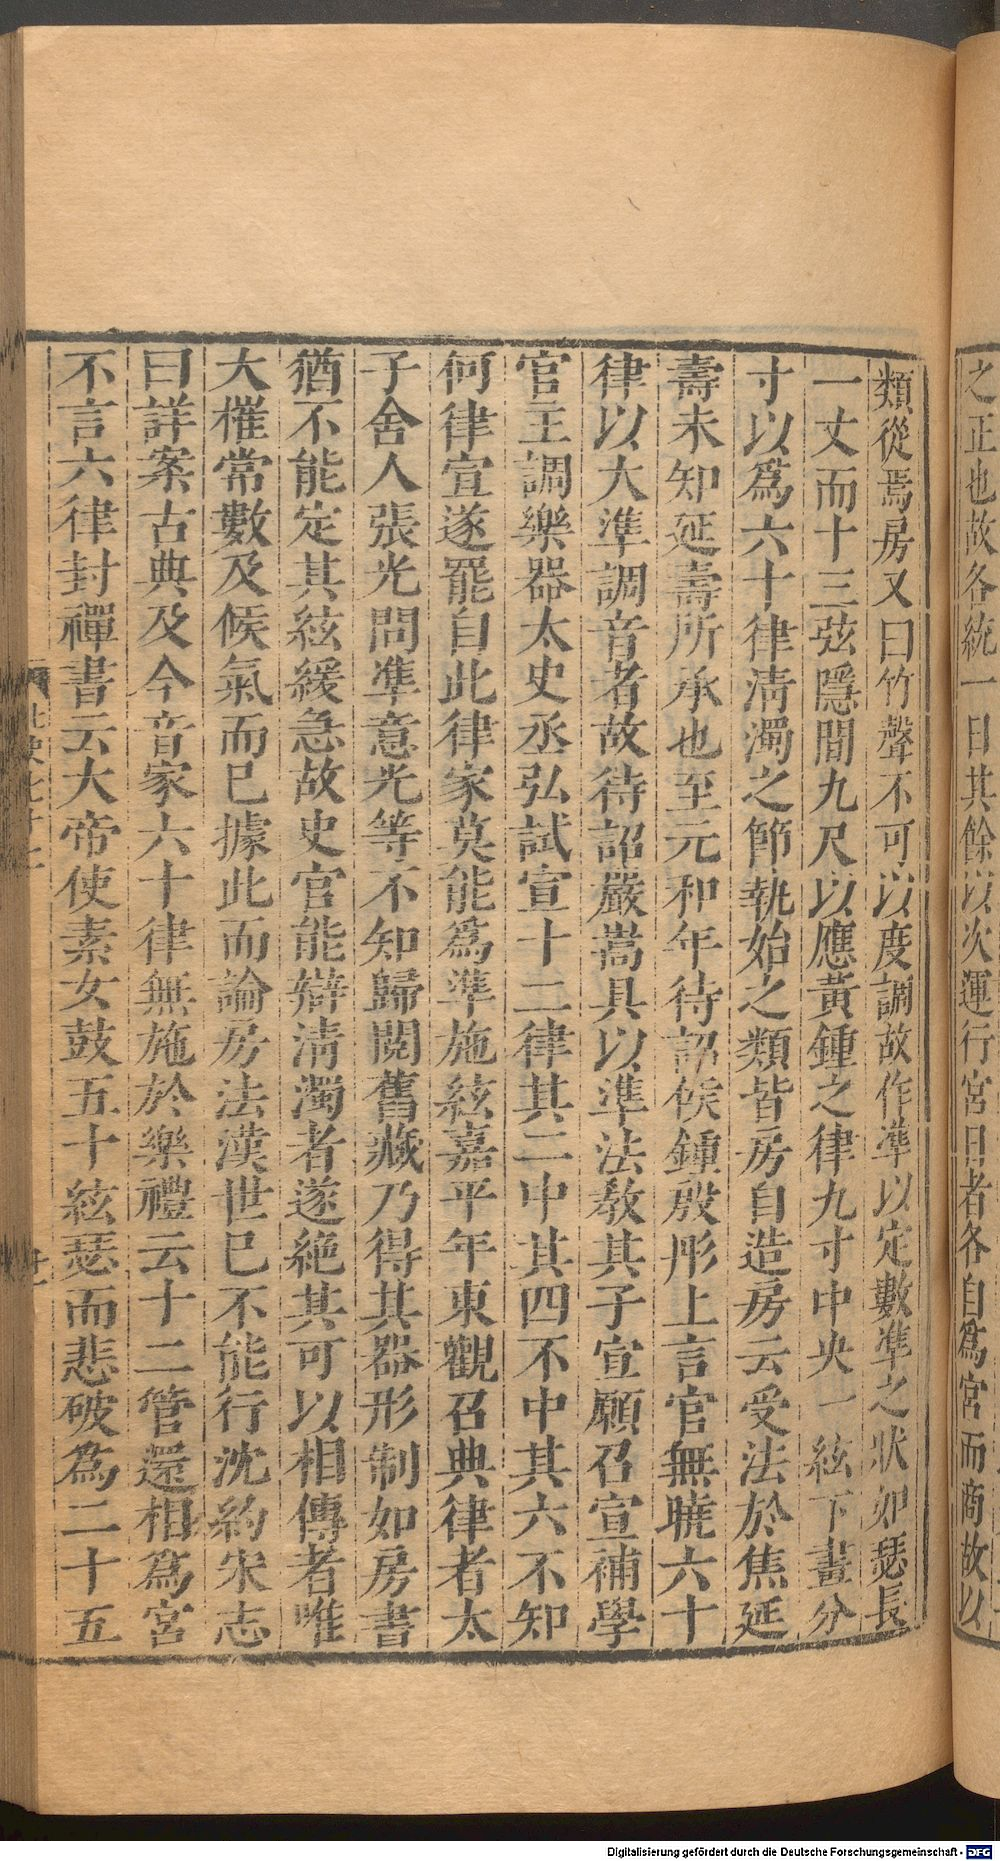 之正也故各統一日其餘以次運行宮日者各自爲宮而商故以
類從焉房又曰竹聲不可以度調故作準以定數準之狀如瑟長
一丈而十三弦隱間九尺以應黃鍾之律九寸中央一絃下畫分
寸以爲六十律清濁之節執始之類皆房自造房云受法於焦延
壽未知延壽所承也至元和年待詔候鍾殷彤上言官無曉六十
律以大準調音者故待詔嚴嵩具以準法教其子宣願召宣補學
官王調樂器太史丞弘試宣十二律其二中其四不中其六不知
何律宣遂罷自此律家莫能爲準施絃嘉平年東觀召典律者太
子舍人張光問準意光等不知歸閱舊藏乃得其器形制如房書
猶不能定其絃緩急故史官能辯清濁者遂絕其可以相傳者唯
大榷常數及候氣而已據此而論房法漢世已不能行沈約宋志
曰詳案古典及今音家六十律無施於樂禮云十二管還相爲宮
不言六律封禪書云大帝使素女鼓五十絃瑟而悲破爲二十五
Digitalisierung gefördert durch die Deutsche Forschungsgemeinschaft - DFG